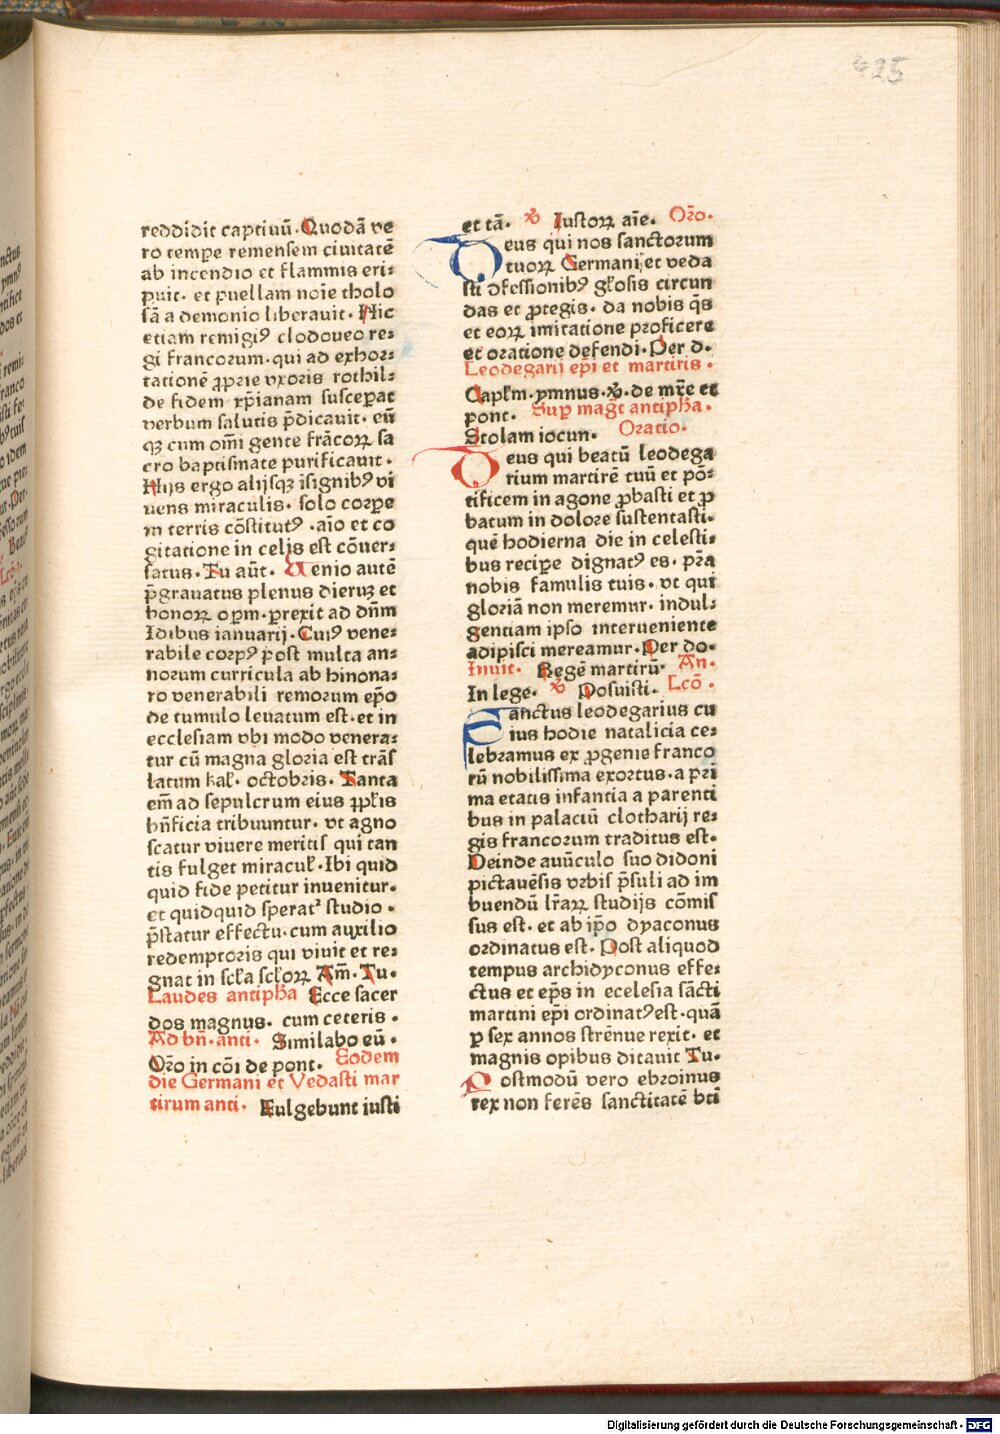 425
reddidit captiuū. Quodā ve
ro tempe remensem ciuitatē
ab incendio et flammis eri⸗
puit. et puellam noīe tholo
sā a demonio liberauit. Hic
etiam remigiꝰ clodoueo re⸗
gi francorum. qui ad exhor⸗
tationē ꝓprie vxoris rothil⸗
de fidem xp̄ianam susceperat
verbum salutis p̄dicauit. eū
qꝫ cum om̄i gente frācoꝝ sa
cro baptismate purificauit.
Hijs ergo alijsqꝫ īsignibꝰ vi
uens miraculis. solo corpe
in terris cōstitutꝰ. aīo et co
gitatione in celis est cōuer⸗
satus. Tu aūt. Uenio autē
p̄grauatus plenus dieruꝫ et
honoꝝ opm. prexit ad dn̄m
Idibus ianuarij. Cuiꝰ vene⸗
rabile corpꝰ post multa an⸗
norum curricula ab hinona⸗
ro venerabili remorum ep̄o
de tumulo leuatum est. et in
ecclesiam vbi modo venera⸗
tur cū magna gloria est trās
latum kal̄. octobris. Tanta
em̄ ad sepulcrum eius ꝓpl̄is
bn̄ficia tribuuntur. vt agno
scatur viuere meritis qui tan
tis fulget miracul̄. Ibi quid
quid fide petitur inuenitur.
et quidquid sperat᷑ studio.
p̄statur effectu. cum auxilio
redemptoris qui viuit et re⸗
gnat in scl̄a scl̄oꝝ Am̄. Tu.
Laudes antiph̄a Ecce sacer
dos magnus. cum ceteris.
Ad bn̄. anti. Similabo eū.
Or̄o in cōi de pont. Eodem
die Germani et Vedasti mar
tirum anti. Fulgebunt iusti
et tā. ℣ Iustoꝝ aīe. Or̄o.
Deus qui nos sanctorum
tuoꝝ Germani et veda
sti ꝯfessionibꝰ gl̄osis circun
das et ꝓtegis. da nobis q̄s
et eoꝝ imitatione proficere
et oratione defendi. Per d.
Leodegarij ep̄i et martiris.
Capl̄m. ymnus. ℣. de mr̄e et
pont. Sup maḡt antiph̄a.
Stolam iocun. Oratio.
Deus qui beatū leodega
rium martirē tuū et pō⸗
tificem in agone ꝓbasti et ꝓ
batum in dolore sustentasti.
quē hodierna die in celesti⸗
bus recipe dignatꝰ es. pr̄a
nobis famulis tuis. vt qui
gloriā non meremur. indul⸗
gentiam ipso interueniente
adipisci mereamur. Per do.
Inuit. Regē martirū. An.
In lege. ℣ Posuisti. Lcō.
Sanctus leodegarius cu
ius hodie natalicia ce⸗
lebramus ex ꝓgenie franco
rū nobilissima exortus. a pri
ma etatis infantia a parenti
bus in palaciū clotharij re⸗
gis francorum traditus est.
Deinde auūculo suo didoni
pictauēsis vrbis p̄suli ad im
buendū lr̄aꝝ studijs cōmis
sus est. et ab ip̄o dyaconus
ordinatus est. Post aliquod
tempus archidyconus effe⸗
ctus et ep̄s in ecelesia sācti
martini ep̄i ordinatꝰ est. quā
ꝑ sex annos strēnue rexit. et
magnis opibus ditauit Tu.
Postmodū vero ebroinus
rex non ferēs sanctitatē bti
Digitalisierung gefördert durch die Deutsche Forschungsgemeinschaft - DFG